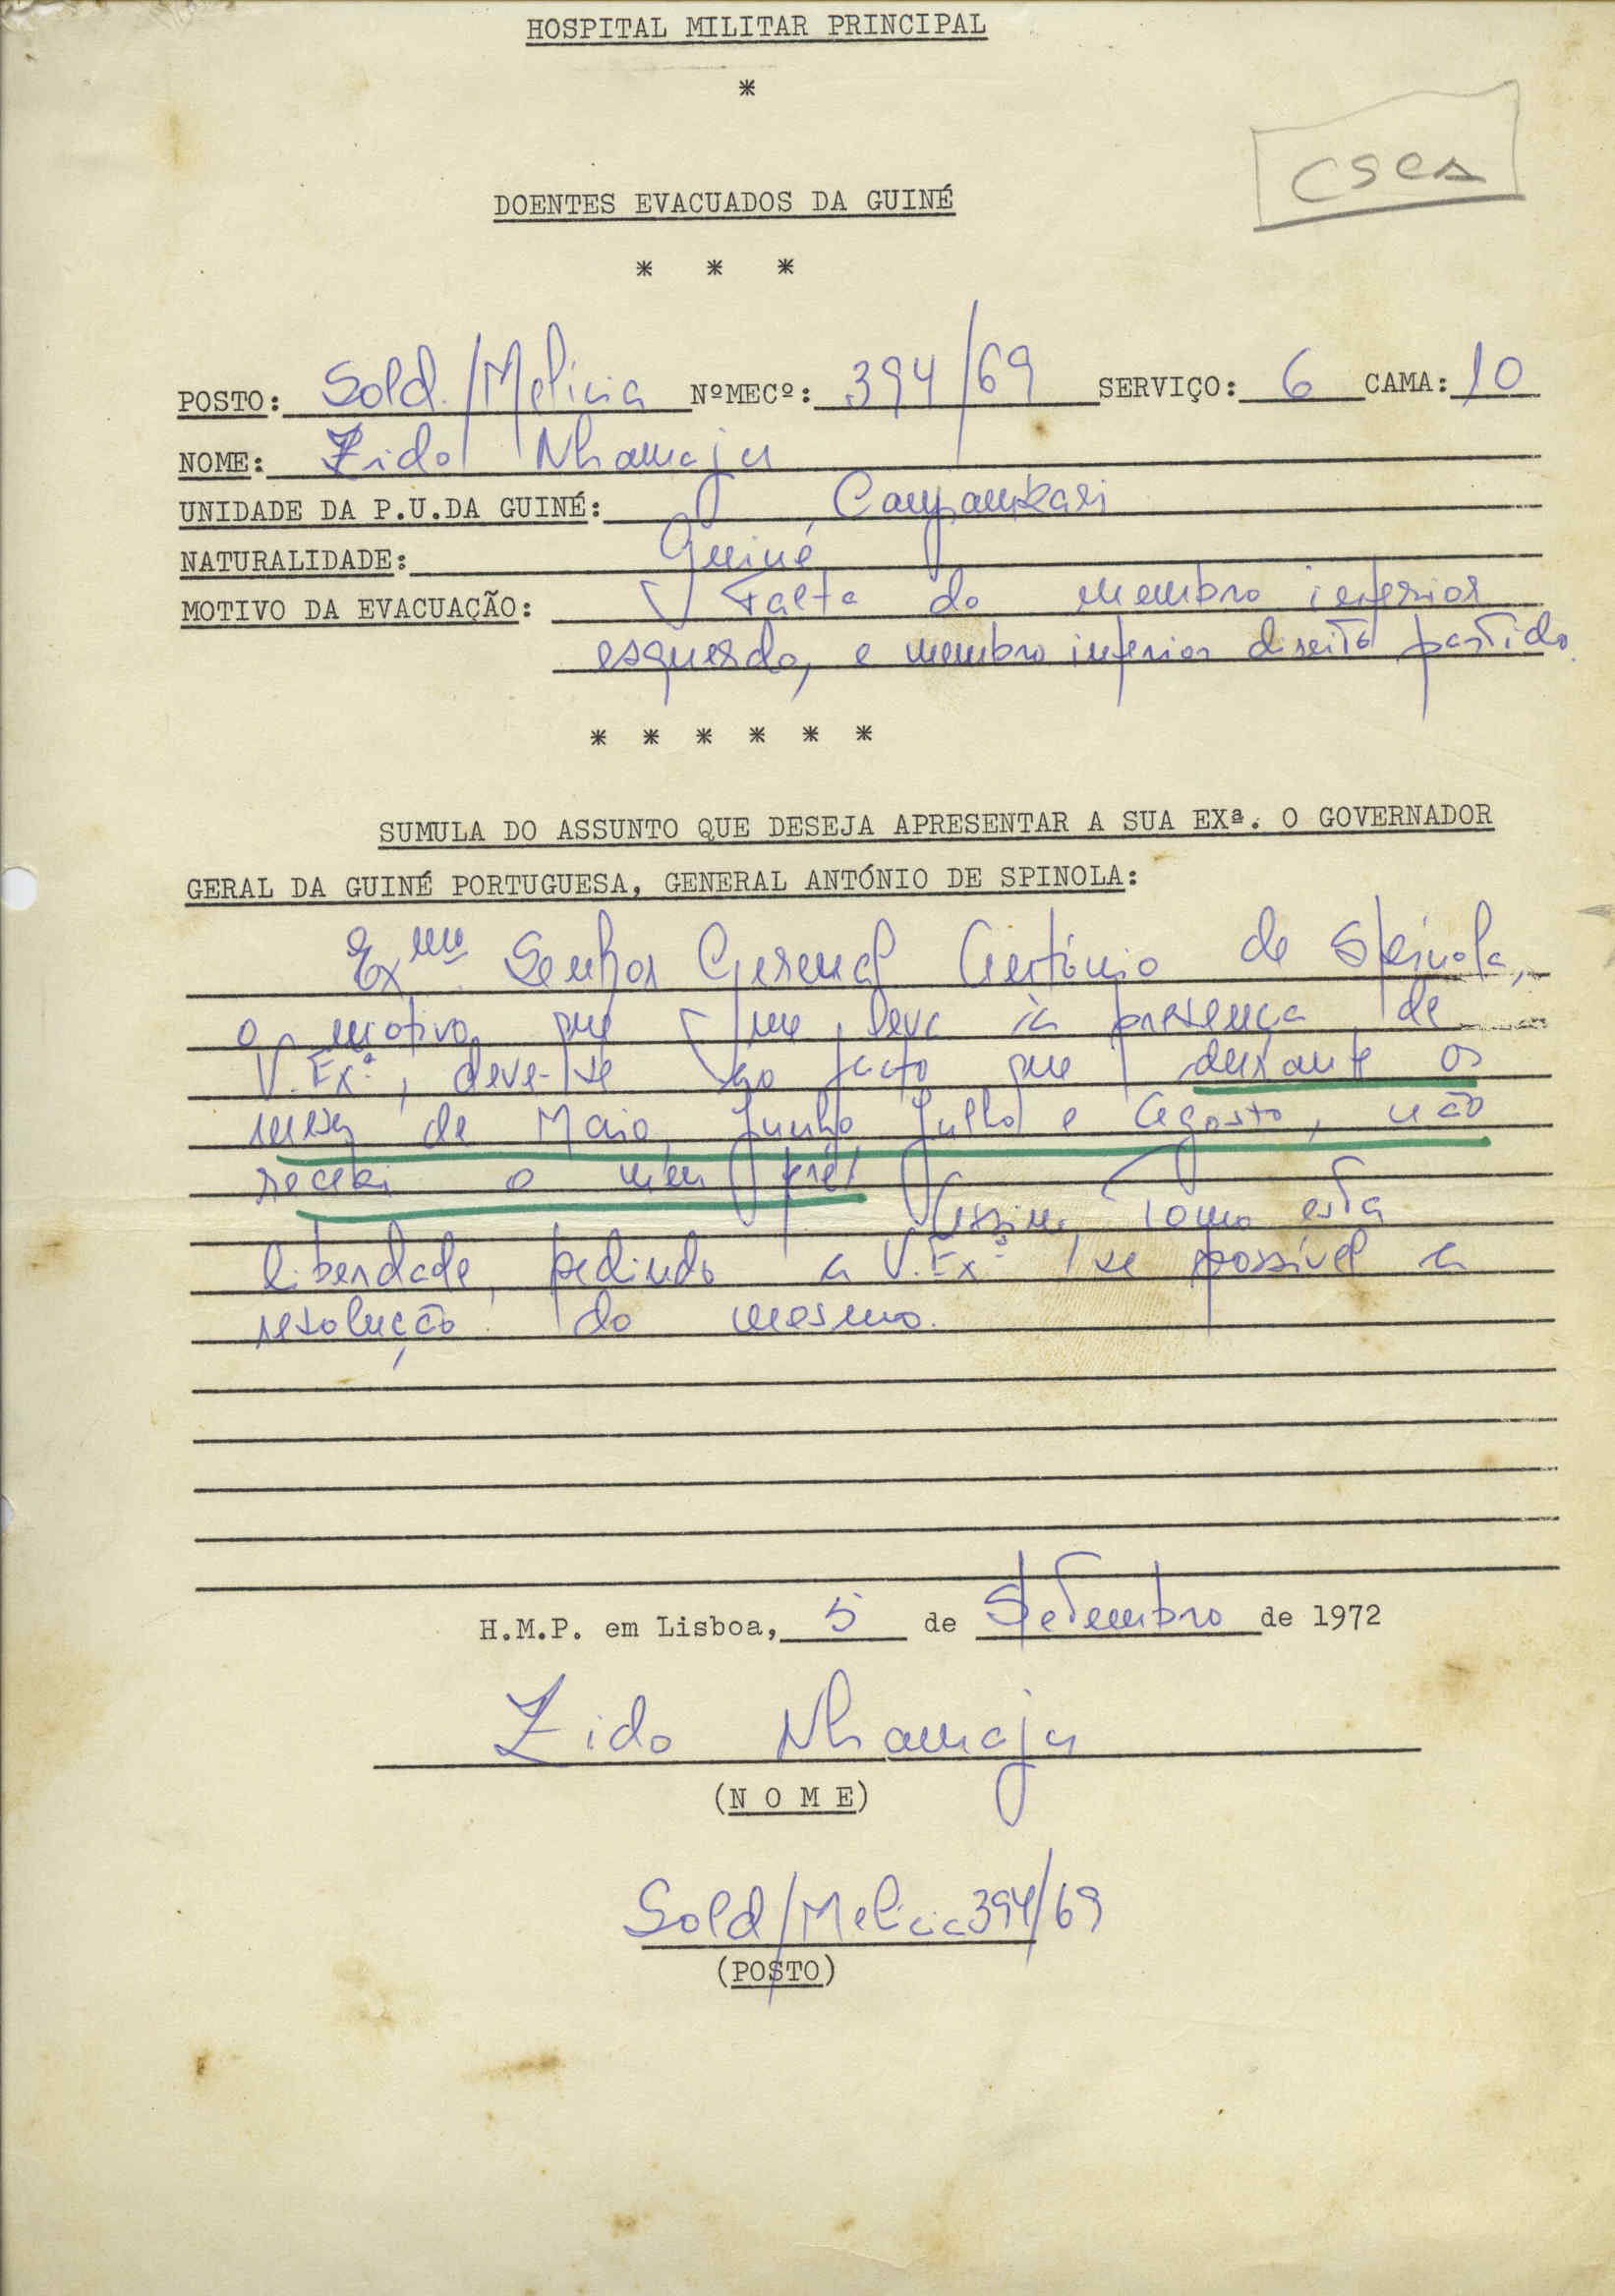 HOSPITAL MILITAR PRINCIPAL
*
CSCA
DOENTES EVACUADOS DA GUINÉ
* * *
POSTO: Sold./Melicia NºMECº: 394/69 SERVIÇO: 6 CAMA: 10
NOME: Zido Nhamaju
UNIDADE DA P.U.DA GUINÉ:
NATURALIDADE: Guiné
MOTIVO DA EVACUAÇÃO: Falta do membro inferior
esquerdo, e membro inferior direito partido.
* * * * * *
SUMULA DO ASSUNTO QUE DESEJA APRESENTAR A SUA EXª. O GOVERNADOR
GERAL DA GUINÉ PORTUGUESA, GENERAL ANTÓNIO DE SPINOLA:
Exmo Senhor General António de Spínola,
o motivo que me leva à presença de
V. Exª, deve-se ao facto que durante os
meses de Maio, Junho Julho e Agosto, não
recebi o meu pré.
Assim, tomo esta
liberdade, pedindo a V. Exª se possível a
resolução do mesmo.
H.M.P. em Lisboa, 5 de Setembro de 1972
Zido Nhamaju
(N O M E)
Sold/Melicia 394/69
(POSTO)